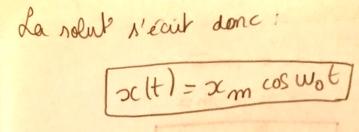 La solut° s'écrit donc :
x(t) = x_m cos ω₀t